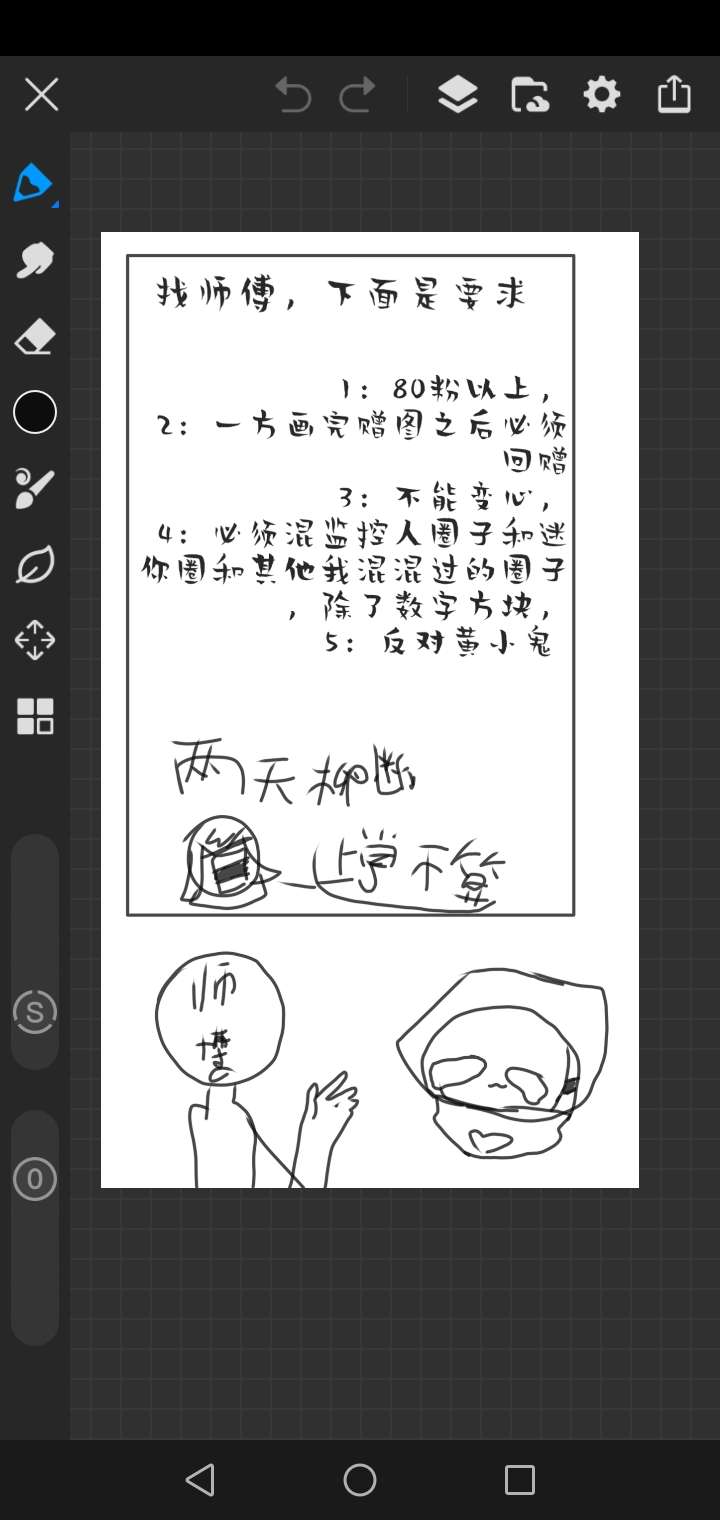 找师傅，下面是要求
1：80粉以上，
2：一方画完赠图之后必须
回赠
3：不能变心，
4：必须混监控人圈子和迷
你圈和其他我混混过的圈子
，除了数字方块，
5：反对黄小鬼
两天柳断
上学不算
师
S
0